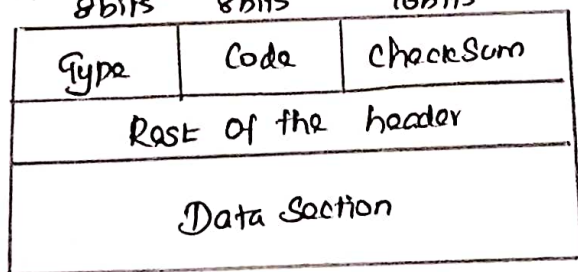 8bits 8bits 16bits
Type Code CheckSum
Rest of the header
Data Section